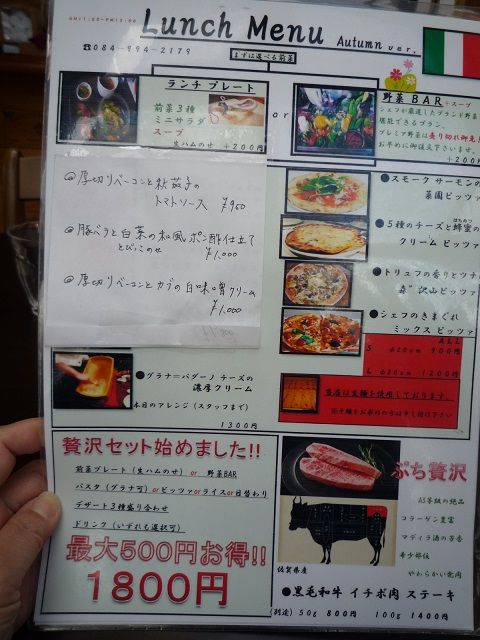 AM11:00~PM15:00
Lunch Menu Autumn ver.
☎084-994-2179
まずは選べる前菜
ランチプレート
前菜3種
ミニサラダ
スープ
生ハムのせ +200円
or
野菜BAR+スープ
シェフが厳選したブランド野菜
堪能できるプラン。
プレミア野菜は売り切れ御免
お早めに御注文下さいませ。
+200
◎厚切りベーコンと秋茄子の
トマトソース ¥950
◎豚バラと白菜の和風ポン酢仕立て
とびこのせ ¥1,000
◎厚切りベーコンとカブの白味噌クリーム
¥1,000
●スモークサーモンの
菜園ピッツァ
●5種のチーズと蜂蜜の
はちみつ
クリームピッツァ
●トリュフの香りとツナ
森"沢山ピッツァ
●シェフのきまぐれ
ミックスピッツァ
ALL
S φ20cm 900円
L φ26cm 1200円
当店は生麺を使用しております。
●グラナ=パダーノ チーズの
濃厚クリーム
本日のアレンジ(スタッフまで)
1300円
贅沢セット始めました!!
前菜プレート(生ハムのせ) or 野菜BAR
パスタ(グラナ可)orピッツァorライスor日替わり
デザート3種盛り合わせ
ドリンク(いずれも選択可)
最大500円お得!!
1800円
ぷち贅沢
A5等級の絶品
コラーゲン豊富
マディラ酒の芳香
希少部位
やわらかい赤肉
佐賀県産
●黒毛和牛 イチボ肉 ステーキ
(別途) 50g 800円 100g 1400円